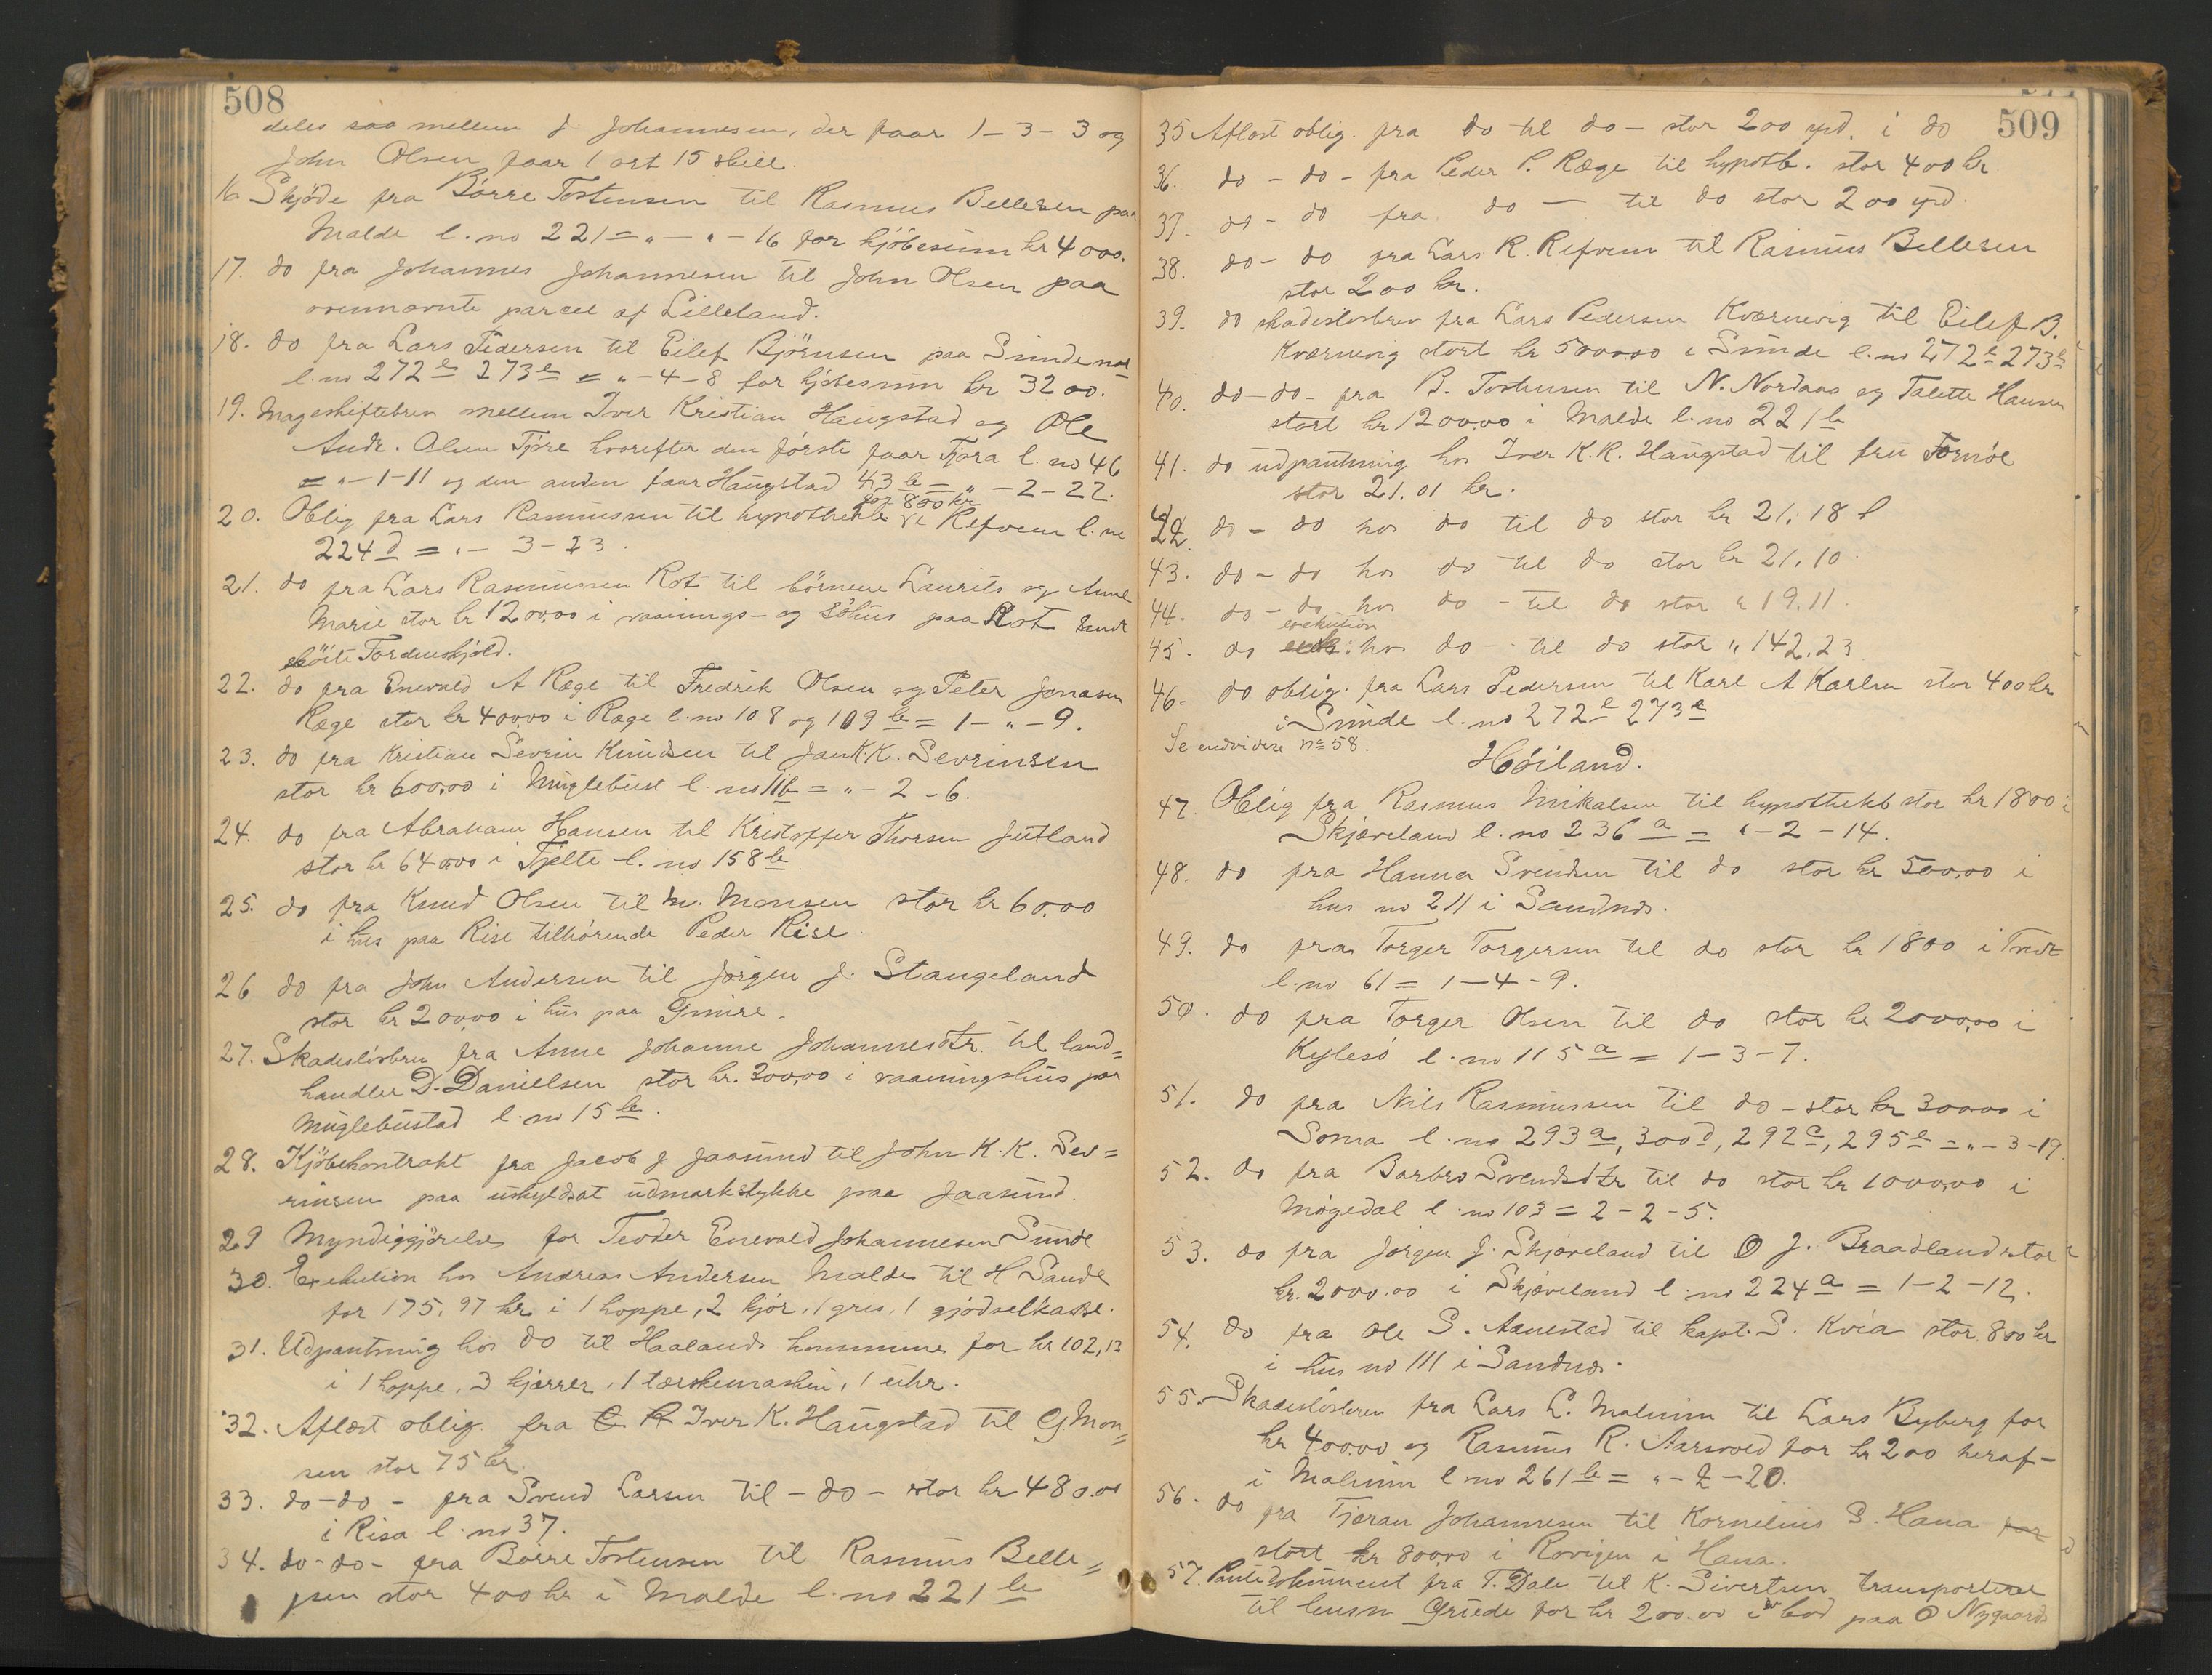 508
deles saa mellem J Johannesen, der faar 1-3-3 og
John Olsen faar 1 ort 15 skill.
16. Skjøde fra Börre Tostensen til Rasmus Bellesen paa
Malde l. no 221 = „ - „ - 16 for kjöbesum kr 4000.
17. do fra Johannes Johannesen til John Olsen paa
ovennævnte parcel af Lilleland.
18. do fra Lars Pedersen til Eilef Björnsen paa Sunde
l. no 272 273 = „-4-8 for kjöbesum kr 3200.
19. Mageskiftebrev mellem Iver Kristian Haugstad og Ole
Andr. Olsen Tjöre hvorefter den förste faar Tjora l. no 46
= „-1-11 og den anden faar Haugstad 43 b = „-2-22.
for 800 kr
20. Oblig fra Lars Rasmussen til hypothekb i Refvem l. no
224 d = „- 3-23.
21. do fra Lars Rasmussen Rot til börnene Laurits og Anne
Marie stor kr 1200,00 i vaanings- og söhus paa Rot samt
sköite Tordenskjold.
22. do fra Enevald A Ræge til Fredrik Olsen og Peter Jonasen
Ræge stor kr 400,00 i Ræge l. no 108 og 109 b = 1- „ - 9.
23. do fra Kristian Sevrin Knudsen til Jan K.K. Sevrinsen
stor kr 600,00 i Myglebust l. no 11b = „ - 2 - 6.
24. do fra Abraham Hansen til Kristoffer Thorsen Jutland
stor kr 640,00 i Tjelte l. no 158 b
25. do fra Knud Olsen til M. Monsen stor kr 60,00
i hus paa Rise tilhörende Peder Rise.
26 do fra John Andersen til Jörgen J. Stangeland
stor kr 200,00 i hus paa Gimre.
27. Skadeslösbrev fra Anne Johanne Johannesdtr. til land=
handler D. Danielsen stor kr. 300,00 i vaaningshus paa
Myglebustad l. no 15 b.
28. Kjöbekontrakt fra Jacob J Jaasund til John K. K. Sev=
rinsen paa uskyldsat udmarkstykke paa Jaasund.
29 Myndiggjörelse for Teodor Enevald Johannesen Sunde
30. Exekution hos Andreas Andersen Malde til H Sande
for 175,97 kr i 1 hoppe, 2 kjör, 1 gris, 1 gjödselkasse.
31. Udpantning hos do til Haalands kommune for kr 102,13
i 1 hoppe, 3 kjærrer, 1 tærskemaskin, 1 uhr.
32. Aflæst oblig. fra Iver K. Haugstad til G. Mon=
sen stor 75 kr.
33. do-do- fra Svend Larsen til - do - stor kr 480.00
i Risa l. no 37.
34. do-do- fra Börre Tostensen til Rasmus Belle=
sen stor 400 kr i Malde l. no 221 b
509
35 Aflæst oblig. fra do til do - stor 200 spd. i do
36. do - do - fra Peder P. Ræge til hypotb. stor 400 kr
37. do - do fra do - til do stor 200 spd.
38. do - do fra Lars R. Refvem til Rasmus Bellesen
stor 200 kr.
39. do skadeslosbrev fra Lars Pedersen Kværnevig til Eilef B.
Kværnevig stort kr 500,00 i Sunde l. no 272 273
40. do-do- fra B. Tostensen til N. Nordaas og Talette Hansen
stort kr 1200,00 i Malde l. no 221 b
41. do udpantning hos Iver K.R. Haugstad til fru Tornöe
stor 21.01 kr.
42. do - do hos do til do stor kr 21,18
43. do - do hos do til do stor kr 21.10.
44. do - do hos do - til do stor „ 19.11.
exekution
45. do hos do - til do stor „ 142.23
46. do oblig. fra Lars Pedersen til Karl A Karlsen stor 400 kr
i Sunde l. no 272 273
Se endvidere no 58.
Höiland.
47. Oblig fra Rasmus Mikalsen til hypothekb stor kr 1800 i
Skjæveland l. no 236 a = „-2-14.
48. do fra Hanna Svendsen til do stor kr 500,00 i
hus no 211 i Sandnes.
49. do fra Torger Torgersen til do stor kr 1800 i
l. no 61 = 1-4-9.
50. do fra Torger Olsen til do stor kr 2000,00 i
Kylesö l. no 115 a = 1-3-7.
51. do fra Nils Rasmussen til do - stor kr 3000,00 i
Soma l. no 293 a, 300 d, 292 c, 295 e = „-3-19.
52. do fra Barbro Svendsdtr til do stor kr 1000,00 i
Mögedal l. no 103 = 2-2-5.
53. do fra Jörgen J. Skjæveland til O J. Braadland stor
kr. 2000.00 i Skjæveland l. no 224 a = 1-2-12.
54. do fra Ole S. Aanestad til kapt. S. Kvia stor 800 kr
i hus no 111 i Sandnes.
55. Skadeslösbrev fra Lars L. Malmin til Lars Byberg for
kr 400,00 og Rasmus R. Aarsvold for kr 200 heraf-
i Malmin l. no 261 b = „ - 2 - 20.
56. do fra Tjøran Johannesen til Kornelius S. Hana for
stort kr 800,00 i Rovigen i Hana.
57. Pantedokument fra T. Dale til K. Sivertsen transporteret
til Gruede for kr 200.00 i bod paa O Nygaards